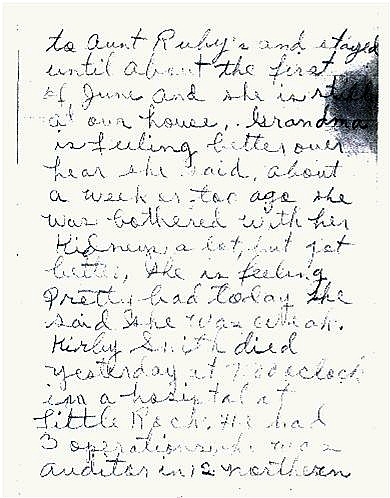 to Aunt Ruby's and stayed
until about the first
of June and she is still
at our house, Grandma
is feeling better over
hear she said, about
a week or too ago she
was bothered with her
Kidneys a lot, but got
better, she is feeling
Pretty bad today she
said she was weak.
Kirby Smith died
yesterday at oclock
in a hospital at
Little Rock. He had
3 operations. he was
auditor in 12 northern